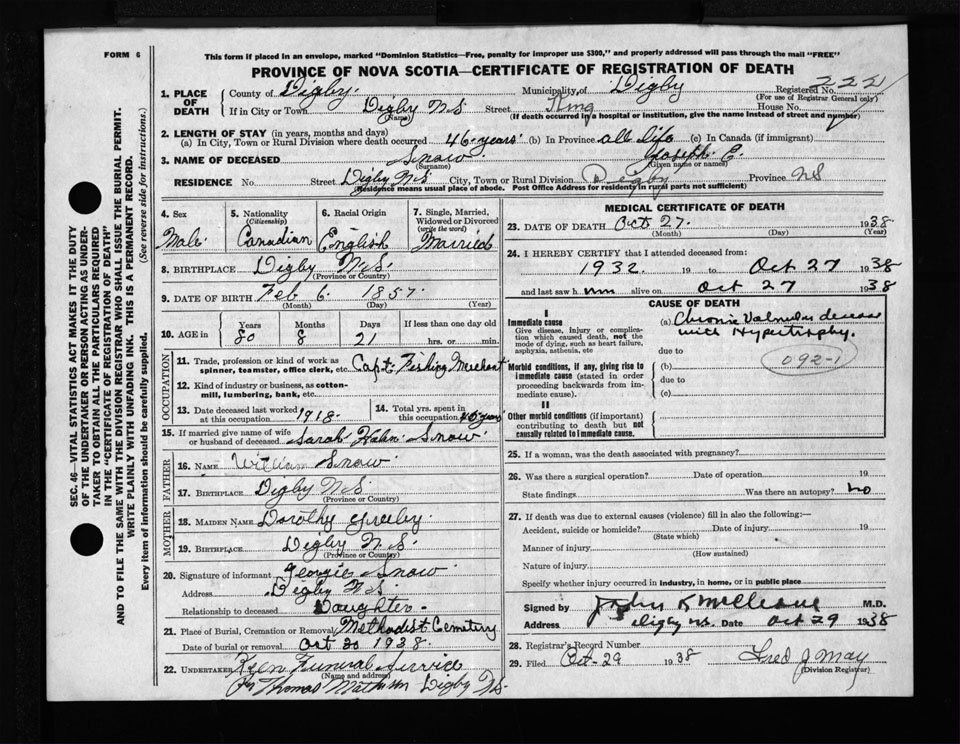 FORM 6
This form if placed in an envelope, marked "Dominion Statistics—Free, penalty for improper use $300," and properly addressed will pass through the mail "FREE"
PROVINCE OF NOVA SCOTIA—CERTIFICATE OF REGISTRATION OF DEATH
1. PLACE OF DEATH
County of Digby. Municipality of Digby Registered No.
(For use of Registrar General only)
If in City or Town Digby NS Street King House No.
(Name) (If death occurred in a hospital or institution, give the name instead of street and number)
2. LENGTH OF STAY (in years, months and days)
(a) In City, Town or Rural Division where death occurred 46 years (b) In Province all life (c) In Canada (if immigrant)
3. NAME OF DECEASED Snow Joseph E.
(Surname) (Given name or names)
RESIDENCE No. Street Digby NS City, Town or Rural Division Digby Province NS
(Residence means usual place of abode. Post Office Address for residents in rural parts not sufficient)
4. Sex
Male
5. Nationality
(Citizenship)
Canadian
6. Racial Origin
English
7. Single, Married, Widowed or Divorced
(write the word)
Married
8. BIRTHPLACE Digby N.S.
(Province or Country)
9. DATE OF BIRTH Feb 6. 1857.
(Month) (Day) (Year)
10. AGE in
Years Months Days If less than one day old
80 8 21 hrs. or min.
OCCUPATION
11. Trade, profession or kind of work as
spinner, teamster, office clerk, etc. Capt. Fishing Merchant
12. Kind of industry or business, as cotton-
mill, lumbering, bank, etc.
13. Date deceased last worked
at this occupation 1918.
14. Total yrs. spent in
this occupation 45 years
15. If married give name of wife
or husband of deceased Sarah Snow
FATHER
16. NAME William Snow
17. BIRTHPLACE Digby N.S
(Province or Country)
MOTHER
18. MAIDEN NAME Dorothy
19. BIRTHPLACE Digby N.S.
(Province or Country)
20. Signature of informant Georgie Snow
Address Digby NS
Relationship to deceased Daughter
21. Place of Burial, Cremation or Removal Methodist Cemetery
Date of burial or removal Oct 30 1938
22. UNDERTAKER Funeral Service
(Name and address)
Per Thomas Digby NS.
MEDICAL CERTIFICATE OF DEATH
23. DATE OF DEATH Oct 27. 1938
(Month) (Day) (Year)
24. I HEREBY CERTIFY that I attended deceased from:
1932. 19 to Oct 27 1938
and last saw him alive on Oct 27 1938
CAUSE OF DEATH
I
Immediate cause
Give disease, injury or complica-
tion which caused death, not the
mode of dying, such as heart failure,
asphyxia, asthenia, etc
(a) Chronic Valvular disease
with Hypertrophy.
due to
092-1
Morbid conditions, if any, giving rise to
immediate cause (stated in order
proceeding backwards from im-
mediate cause).
(b)
due to
(c)
II
Other morbid conditions (if important)
contributing to death but not
causally related to immediate cause.
25. If a woman, was the death associated with pregnancy?
26. Was there a surgical operation? Date of operation 19
State findings Was there an autopsy? no
27. If death was due to external causes (violence) fill in also the following:—
Accident, suicide or homicide? Date of injury 19
(State which)
Manner of injury
(How sustained)
Nature of injury
Specify whether injury occurred in industry, in home, or in public place
Signed by John R M.D.
Address Digby NS. Date Oct 29 1938
28. Registrar's Record Number
29. Filed Oct-29 1938 Fred J May
(Division Registrar)
SEC. 46—VITAL STATISTICS ACT MAKES IT THE DUTY
OF THE UNDERTAKER OR PERSON ACTING AS UNDER-
TAKER TO OBTAIN ALL THE PARTICULARS REQUIRED
IN THE "CERTIFICATE OF REGISTRATION OF DEATH"
AND TO FILE THE SAME WITH THE DIVISION REGISTRAR WHO SHALL ISSUE THE BURIAL PERMIT.
WRITE PLAINLY WITH UNFADING INK. THIS IS A PERMANENT RECORD.
Every item of information should be carefully supplied. (See reverse side for instructions.)